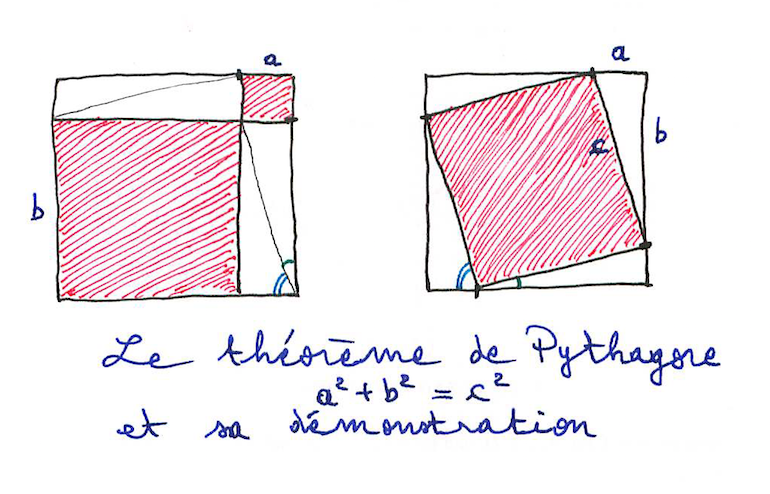 a
a
b
c
b
Le théorème de Pythagore
a² + b² = c²
et sa démonstration